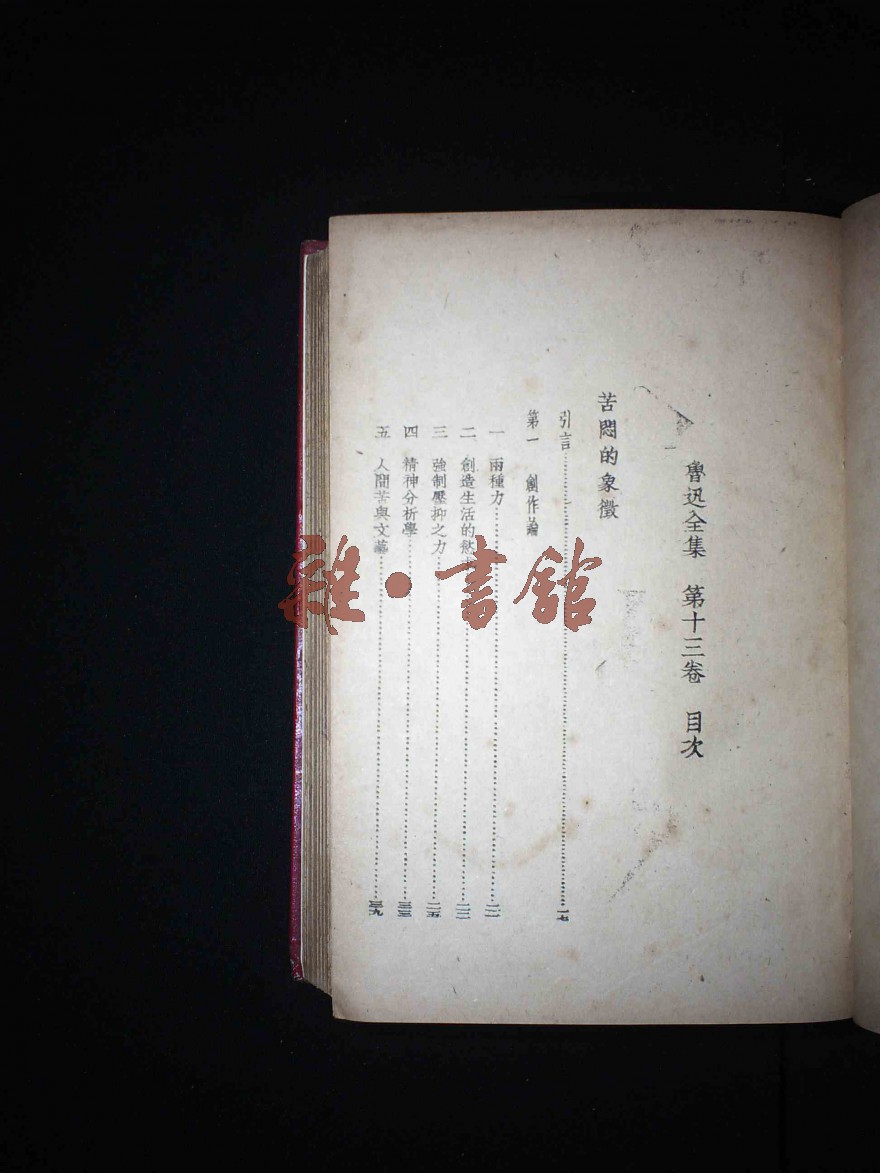 魯迅全集 第十三卷 目次
苦悶的象徵
引言……一七
第一 創作論
一 兩種力……二一
二 創造生活的慾……二二
三 強制壓抑之力……二五
四 精神分析學……三三
五 人間苦與文藝……三九
雜·書館